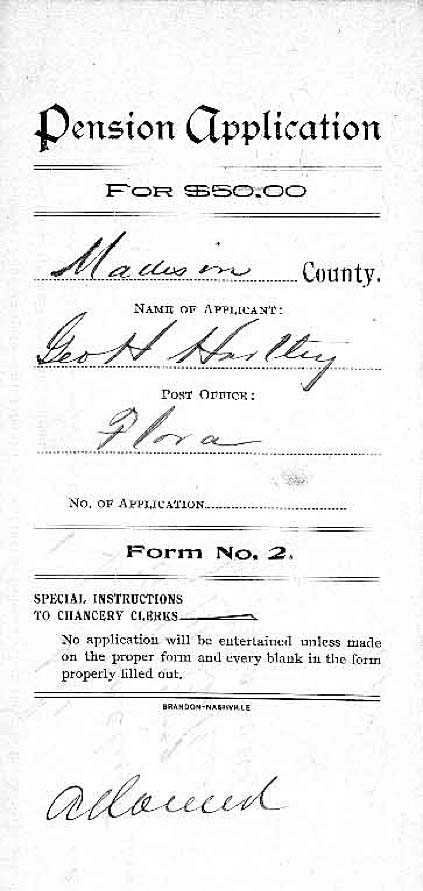 Pension Application
FOR $50.00
Madison County.
NAME OF APPLICANT:
Geo H Hartley
POST OFFICE:
Flora
NO. OF APPLICATION
Form No. 2.
SPECIAL INSTRUCTIONS
TO CHANCERY CLERKS
No application will be entertained unless made
on the proper form and every blank in the form
properly filled out.
BRANDON-NASHVILLE
Allowed